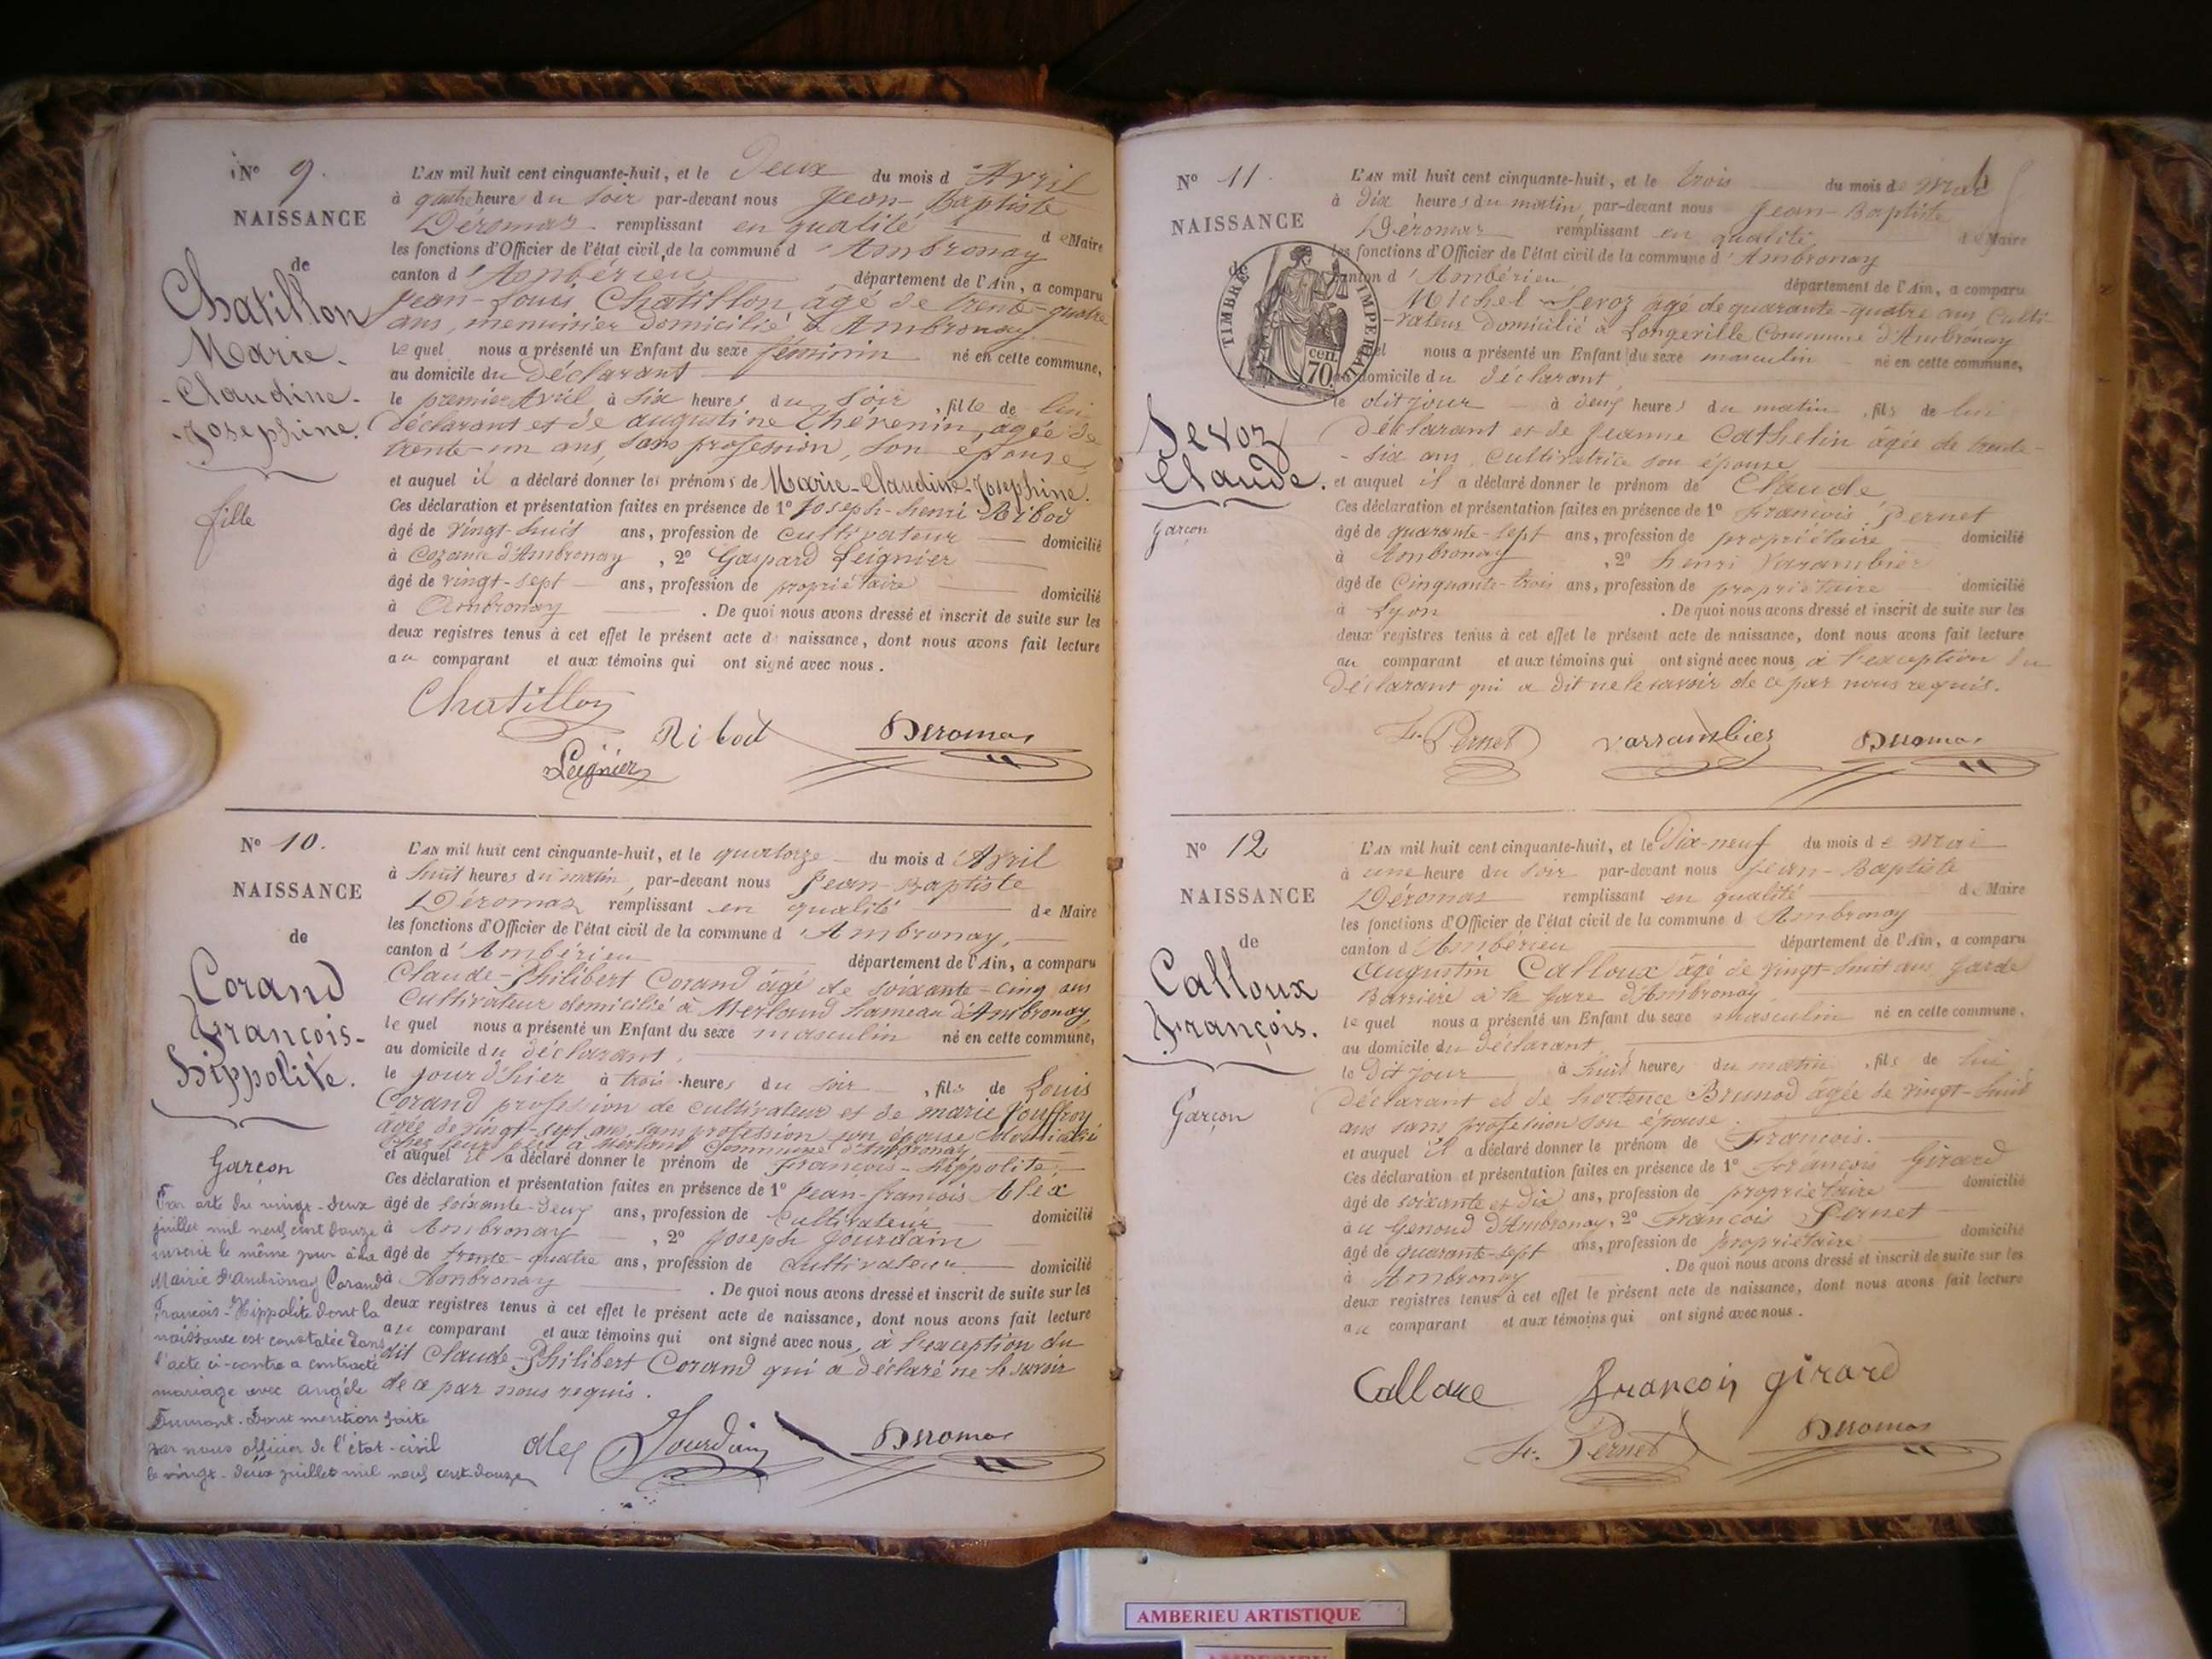 N° 9.
NAISSANCE
de
Chatillon
Marie-
-Claudine-
-Josephine.
fille
L'AN mil huit cent cinquante-huit, et le Deux du mois d'Avril
à quatre heures du soir par-devant nous Jean-Baptiste
Déromas remplissant en qualité de Maire
les fonctions d'Officier de l'état civil de la commune d'Ambronay
canton d'Ambérieu département de l'Ain, a comparu
Jean-Louis Chatillon âgé de trente-quatre
ans, menuisier domicilié à Ambronay
lequel nous a présenté un Enfant du sexe féminin né en cette commune,
au domicile du Déclarant
le premier Avril à six heures du soir, fille de lui
déclarant et de augustine Thévenin, agée de
trente-un ans, sans profession, son épouse,
et auquel il a déclaré donner les prénoms de Marie-Claudine-Josephine.
Ces déclaration et présentation faites en présence de 1° Joseph-henri Ribod
âgé de vingt-huit ans, profession de cultivateur domicilié
à Cozance d'Ambronay, 2° Gaspard Leignier
âgé de vingt-sept ans, profession de propriétaire domicilié
à Ambronay. De quoi nous avons dressé et inscrit de suite sur les
deux registres tenus à cet effet le présent acte de naissance, dont nous avons fait lecture
au comparant et aux témoins qui ont signé avec nous.
Chatillon
Ribod Deromas
Leignier
N° 10.
NAISSANCE
de
Corand
François-
Hippolite.
Garçon
L'AN mil huit cent cinquante-huit, et le quatorze du mois d'Avril
à huit heures du matin, par-devant nous Jean-Baptiste
Déromas remplissant en qualité de Maire
les fonctions d'Officier de l'état civil de la commune d'Ambronay,
canton d'Ambérieu département de l'Ain, a comparu
Claude-Philibert Corand âgé de soixante-cinq ans
Cultivateur domicilié à Merland hameau d'Ambronay
lequel nous a présenté un Enfant du sexe masculin né en cette commune,
au domicile du déclarant.
le jour d'hier à trois heures du soir, fils de Louis
Corand profession de cultivateur et de marie Jouffroy
agée de vingt-sept ans, sans profession son épouse domiciliés
chez leur père à Merland Commune d'Ambronay,
et auquel il a déclaré donner le prénom de François-Hippolite.
Ces déclaration et présentation faites en présence de 1° Jean-françois Alex
âgé de soixante-deux ans, profession de Cultivateur domicilié
à Ambronay, 2° Joseph Jourdain
âgé de trente-quatre ans, profession de Cultivateur domicilié
à Ambronay. De quoi nous avons dressé et inscrit de suite sur les
deux registres tenus à cet effet le présent acte de naissance, dont nous avons fait lecture
au comparant et aux témoins qui ont signé avec nous, à l'exception du
dit Claude-Philibert Corand qui a déclaré ne le savoir
de ce par nous requis.
Par acte du vingt-deux
juillet mil neuf cent douze
inscrit le même jour à la
Mairie d'Ambronay Corand
François-Hippolite dont la
naissance est constatée dans
l'acte ci-contre a contracté
mariage avec Angèle
Dumont. Dont mention faite
par nous officier de l'état-civil
le vingt-deux juillet mil neuf cent douze
alex Jourdain Deromas
N° 11.
NAISSANCE
de
TIMBRE IMPERIAL
70 cen.
Sevoz
Claude.
Garçon
L'AN mil huit cent cinquante-huit, et le trois du mois de Mai
à Dix heures du matin, par-devant nous Jean-Baptiste
Déromas remplissant en qualité de Maire
les fonctions d'Officier de l'état civil de la commune d'Ambronay
canton d'Ambérieu département de l'Ain, a comparu
Michel Sevoz âgé de quarante-quatre ans Culti-
-vateur domicilié à Longeville Commune d'Ambronay
lequel nous a présenté un Enfant du sexe masculin né en cette commune,
au domicile du déclarant,
le dit jour à deux heures du matin, fils de lui
Déclarant et de Jeanne Cathelin âgée de trente-
-six ans, cultivatrice son épouse
et auquel il a déclaré donner le prénom de Claude
Ces déclaration et présentation faites en présence de 1° François Pernet
âgé de quarante-sept ans, profession de propriétaire domicilié
à Ambronay, 2° henri Varambier
âgé de Cinquante-trois ans, profession de propriétaire domicilié
à Lyon. De quoi nous avons dressé et inscrit de suite sur les
deux registres tenus à cet effet le présent acte de naissance, dont nous avons fait lecture
au comparant et aux témoins qui ont signé avec nous, à l'exception du
Déclarant qui a dit ne le savoir de ce par nous requis.
F. Pernet varrambier Deromas
N° 12
NAISSANCE
de
Calloux
François.
Garçon
L'AN mil huit cent cinquante-huit, et le Dix-neuf du mois de Mai
à une heure du soir par-devant nous Jean-Baptiste
Déromas remplissant en qualité de Maire
les fonctions d'Officier de l'état civil de la commune d'Ambronay
canton d'Ambérieu département de l'Ain, a comparu
Augustin Calloux âgé de vingt-huit ans, Garde
Barrière à la gare d'Ambronay
lequel nous a présenté un Enfant du sexe masculin né en cette commune,
au domicile du déclarant
le dit jour à huit heures du matin, fils de lui
Déclarant et de hortence Brunod âgée de vingt-huit
ans sans profession son épouse.
et auquel il a déclaré donner le prénom de François.
Ces déclaration et présentation faites en présence de 1° François Girard
âgé de soixante et dix ans, profession de propriétaire domicilié
à u Genoud d'Ambronay, 2° François Pernet
âgé de quarante-sept ans, profession de propriétaire domicilié
à Ambronay. De quoi nous avons dressé et inscrit de suite sur les
deux registres tenus à cet effet le présent acte de naissance, dont nous avons fait lecture
au comparant et aux témoins qui ont signé avec nous.
Calloux françois girard
F. Pernet Deromas
AMBERIEU ARTISTIQUE
AMBERIEU